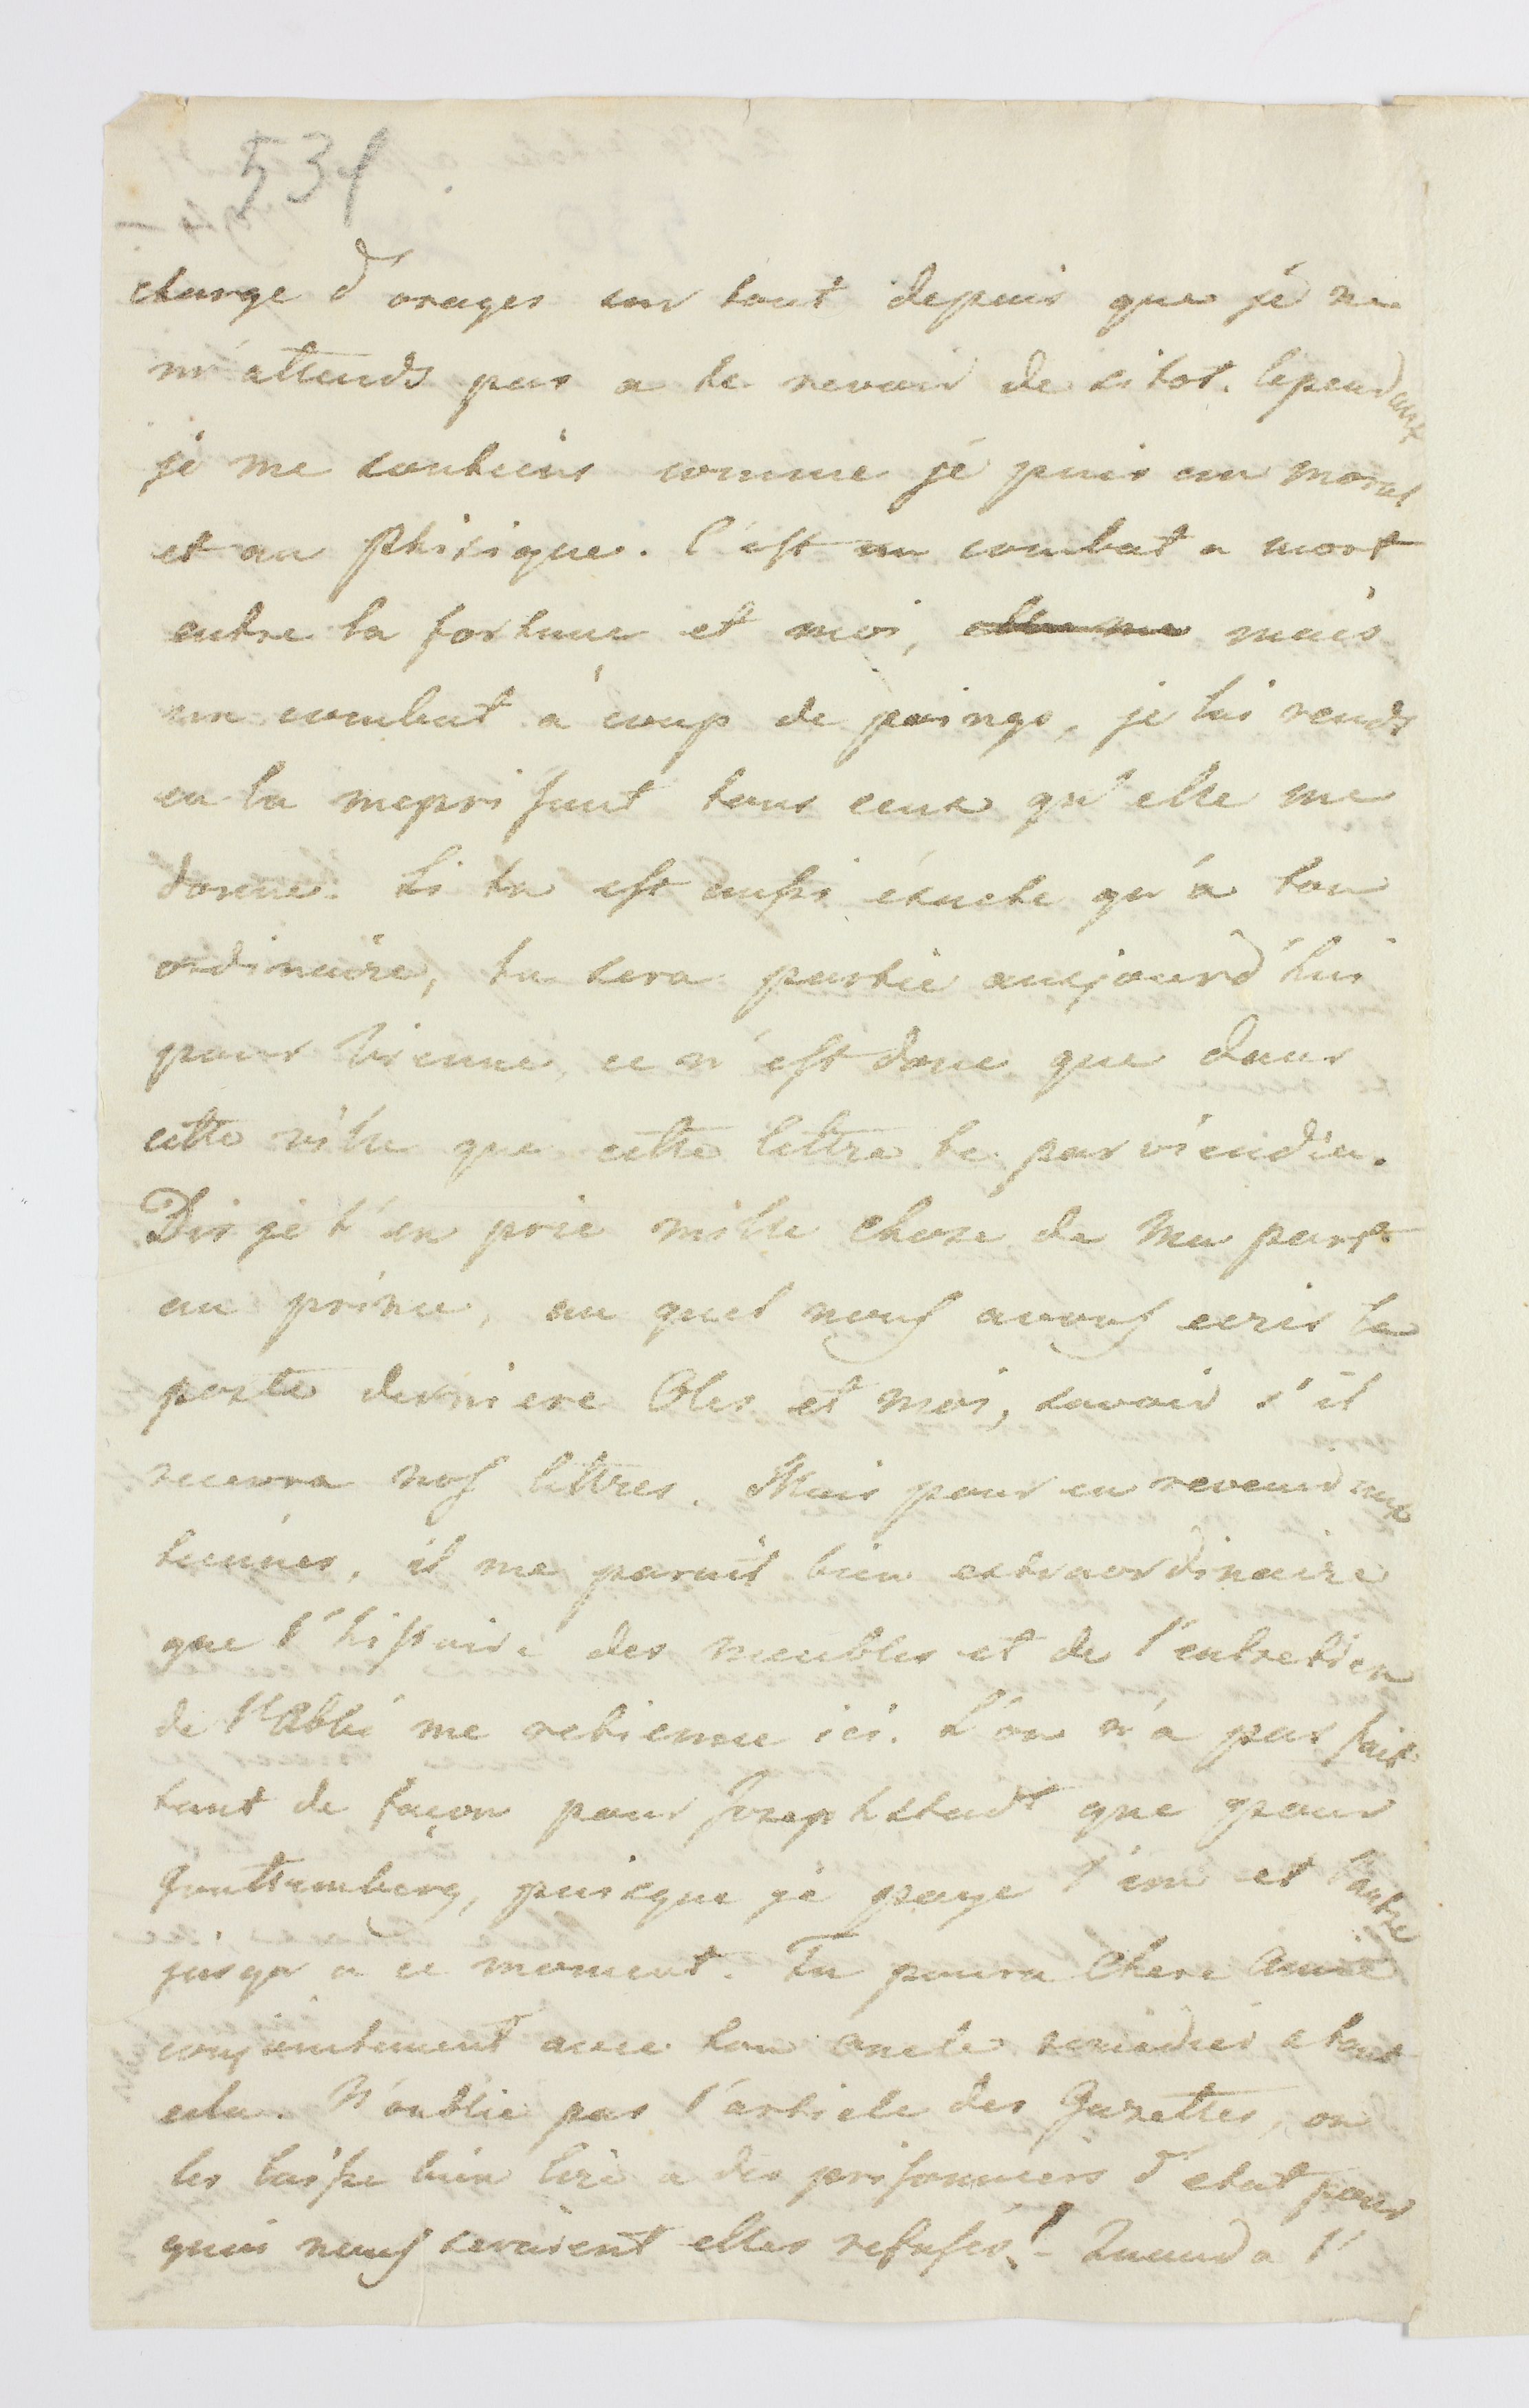 531
charge d'orages sur tout depuis que je ne
m'attends pas a te revoir de sitot. Cependant
je me soutiens comme je puis au moral
et au Phisique. C'est un combat a mort
entre la fortune et moi, mais
un combat a coup de poings, je lui rends
en la meprisant tous ceux qu'elle me
donne. Si tu est aussi éxacte qu'à ton
ordinaire, tu sera partie aujourd'hui
pour Vienne, ce n'est donc que dans
cette ville que cette lettre te parviendra.
Dis je t'en prie mille chose de ma part
au prince, au quel nous avons ecris la
poste derniere Oles et moi, savoir s'il
recevra nos lettres. Mais pour en revenir aux
tiennes, il me parait bien extraordinaire
que l'histoire des meubles et de l'entretien
de l'Abbé me retienne ici. L'on n'a pas fait
tant de façon pour Josephstadt que pour
Gouttemberg, puisque je paye l'un et l'autre
jusqu a ce moment. Tu poura Chere Amie
conjointement avec ton oncle remedier a tout
cela. N'oublie pas l'article des Gazettes, on
les laisse bien lire a des prisonniers d'etat pour
quoi nous seraient elles refusés! - Quand a l'